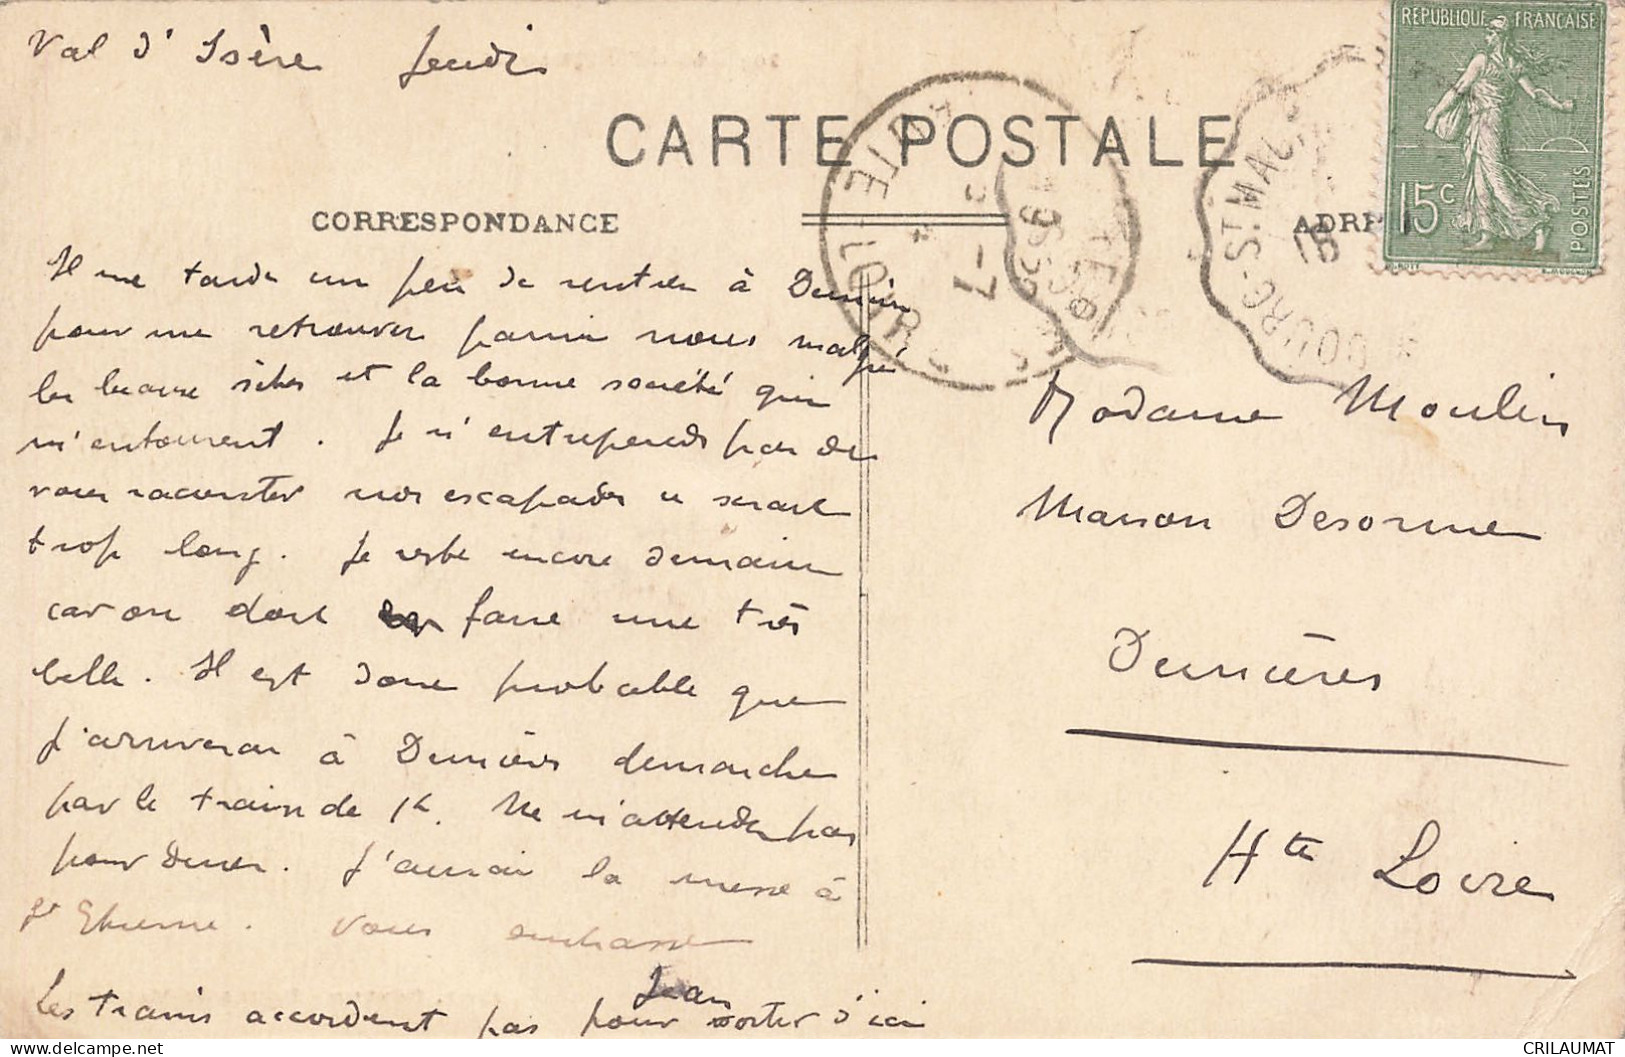 Val d'Isère Jeudi
CARTE POSTALE
CORRESPONDANCE
ADRE
REPUBLIQUE FRANCAISE
15c
POSTES
Il me tarde un peu de rentrer à Dunières
pour me retrouver parmi vous malgré
les beaux sites et la bonne société qui
m'entourent. Je n'entreprends pas de
vous raconter nos escapades ce serait
trop long. Je reste encore demain
car on doit faire une très
belle. Il est donc probable que
j'arriverai à Dunières dimanche
par le train de 1h. Ne m'attendez pas
pour diner. J'aurai la messe à
St Etienne. Vous embrasse
Jean
Les trains accordent pas pour sortir d'ici
Madame Moulin
Maison Desorme
Dunières
Hte Loire
HTE-LOIRE
7-
BOURG-ST MAU
18
delcampe.net
CRILAUMAT